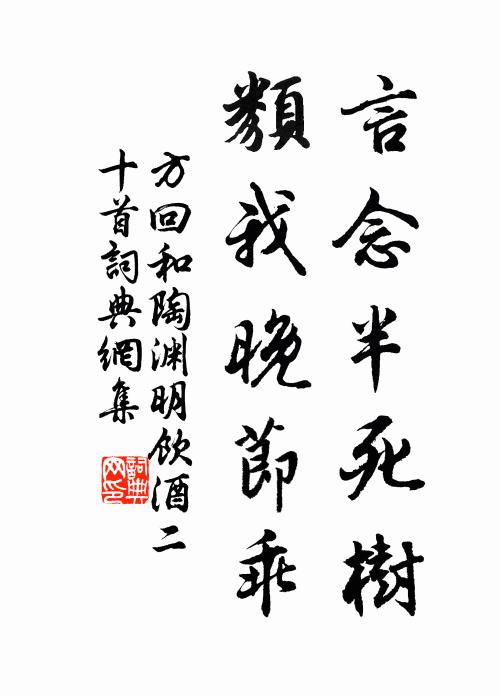 言念半死樹
類我晚節乖
方回和陶淵明飲酒二
十首詞典網集
詞典
网印